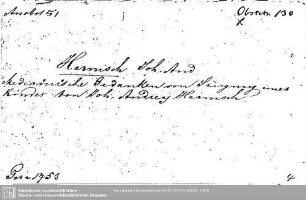 Obstetr. 130
Harnisch Joh. And
Medicinische Gedanken von Säugung eines
Kindes von Joh. Andreas Harnisch
Gera 1753
4
Sächsische Landesbibliothek -
Staats- und Universitätsbibliothek Dresden